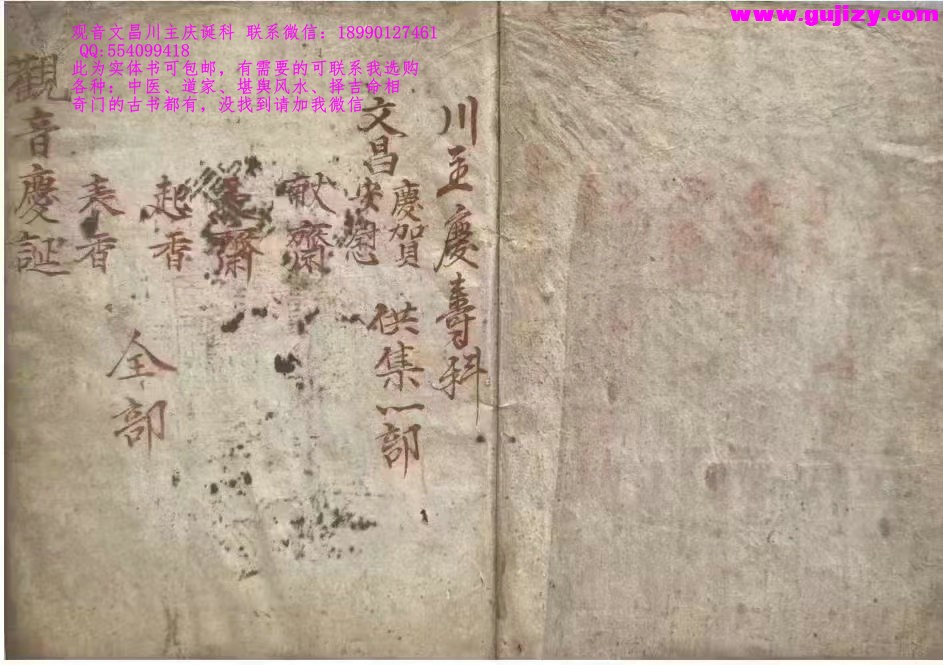 www.gujizy.com
观音文昌川主庆诞科 联系微信：18990127461
QQ:554099418
此为实体书可包邮，有需要的可联系我选购
各种：中医、道家、堪舆风水、择吉命相
奇门的古书都有，没找到请加我微信
川主慶壽科
文昌
慶加貝
安慰
供集一部
献齋
齋
起香
表香
全部
觀音慶誕